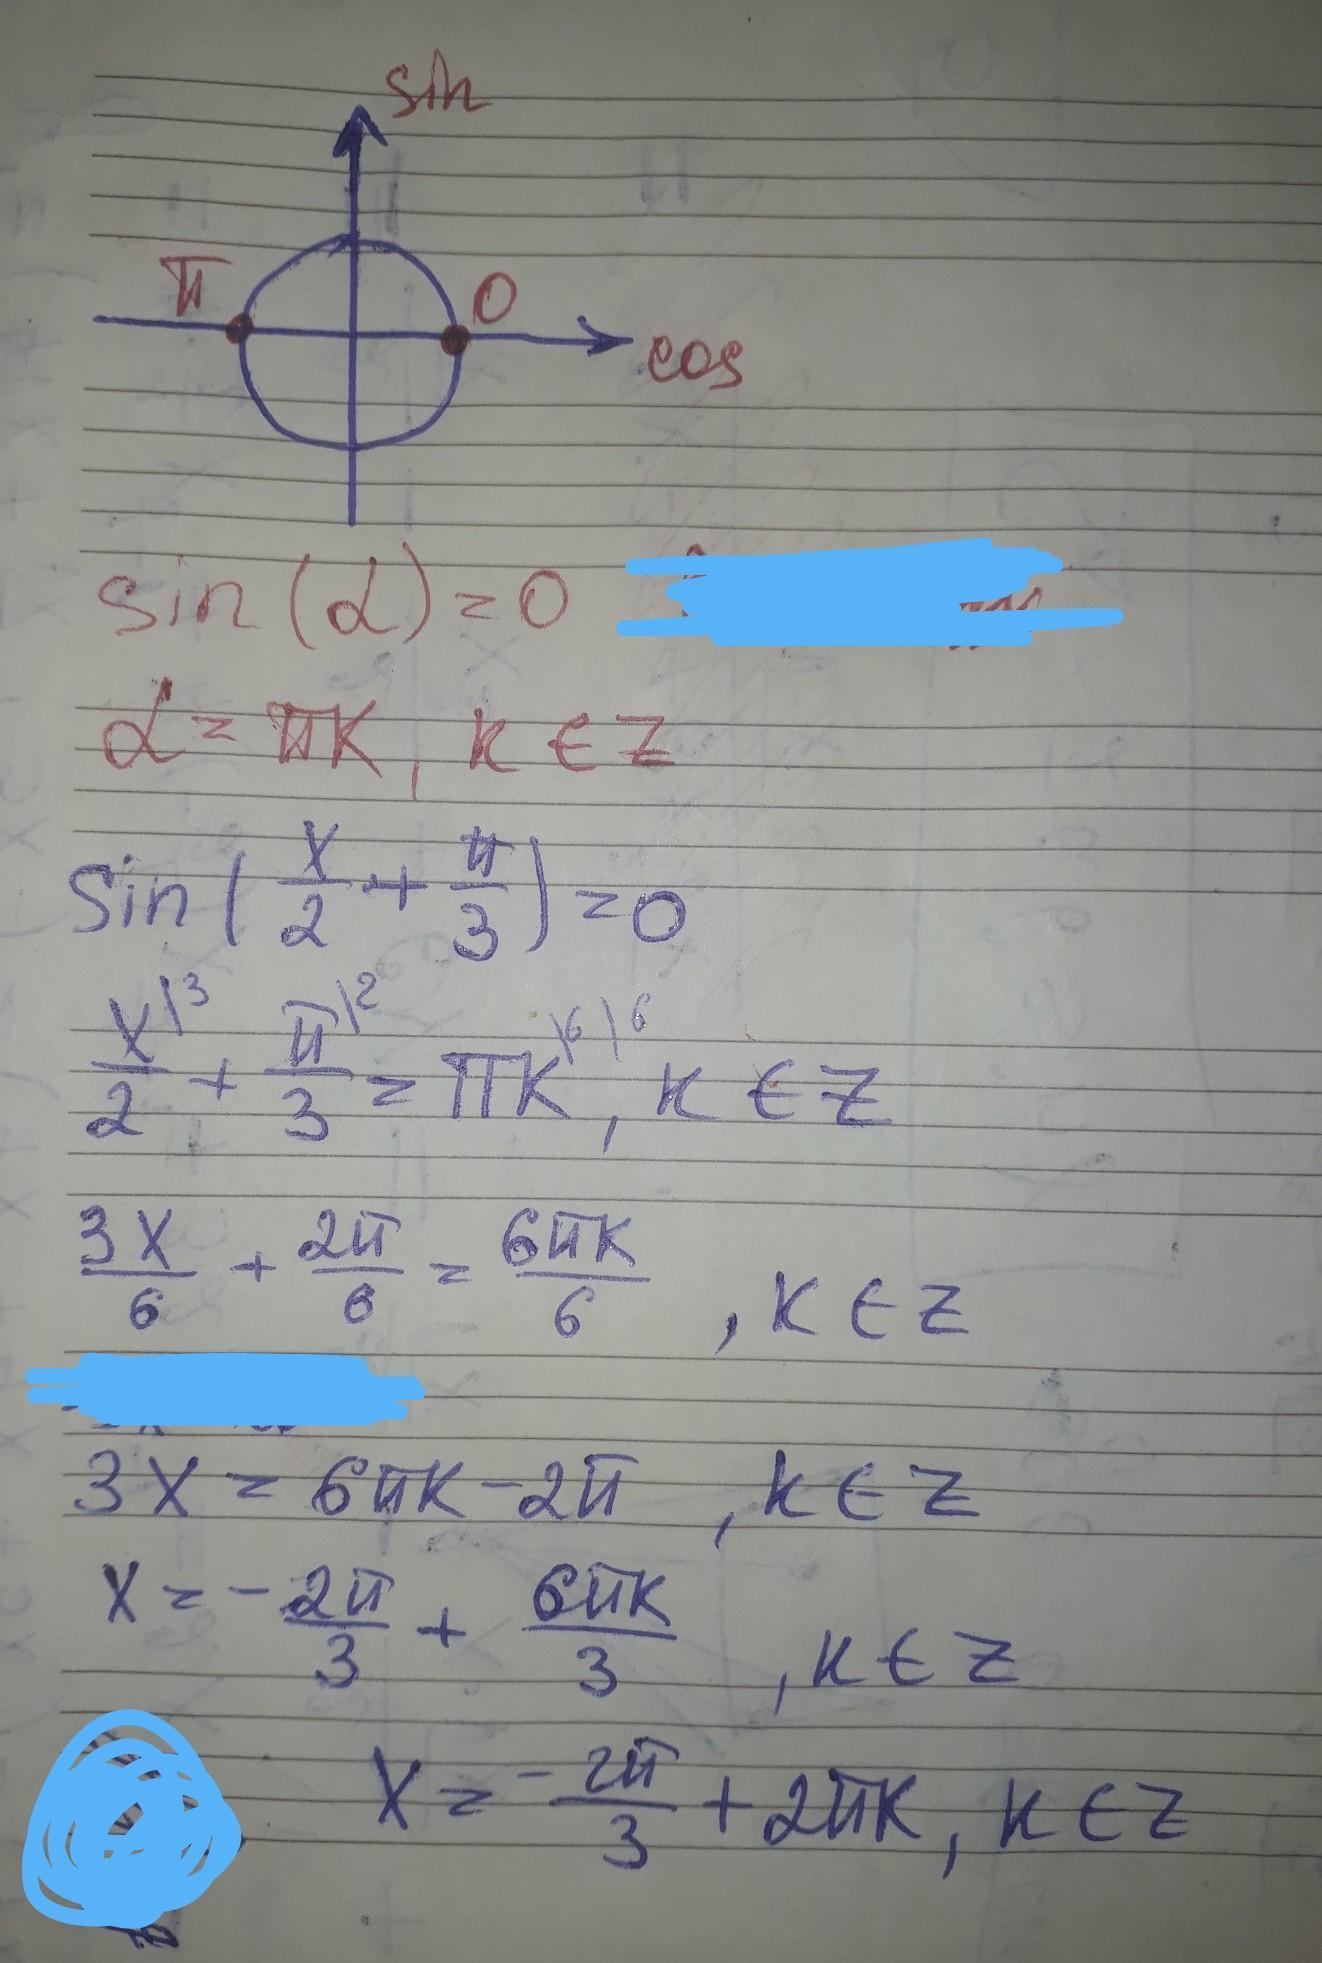 sin
π 0
cos
sin(α)=0
α=πk, k∈Z
sin(x/2+π/3)=0
x\3/2+π\2/3=πk\6\6, k∈Z
3x/6+2π/6=6πk/6, k∈Z
3x=6πk-2π, k∈Z
x=-2π/3+6πk/3, k∈Z
x=-2π/3+2πk, k∈Z